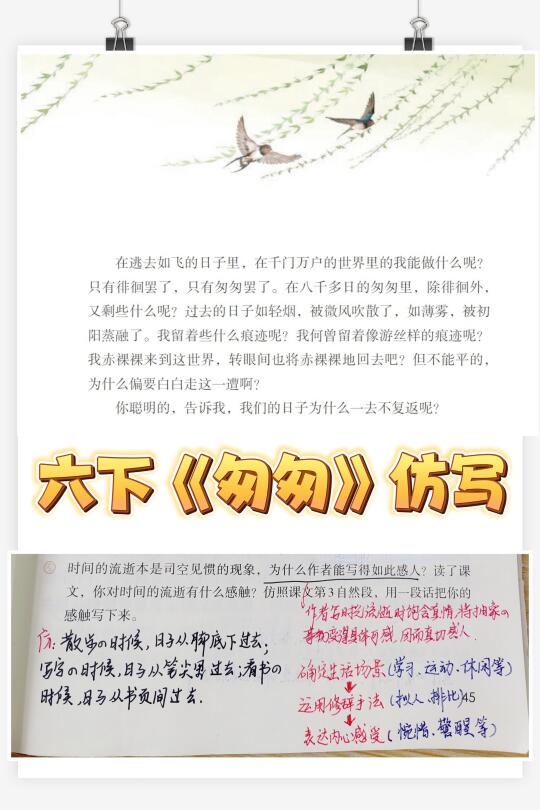 在逃去如飞的日子里，在千门万户的世界里的我能做什么呢？
只有徘徊罢了，只有匆匆罢了。在八千多日的匆匆里，除徘徊外，
又剩些什么呢？过去的日子如轻烟，被微风吹散了，如薄雾，被初
阳蒸融了。我留着些什么痕迹呢？我何曾留着像游丝样的痕迹呢？
我赤裸裸来到这世界，转眼间也将赤裸裸地回去吧？但不能平的，
为什么偏要白白走这一遭啊？
你聪明的，告诉我，我们的日子为什么一去不复返呢？
六下《匆匆》仿写
时间的流逝本是司空见惯的现象，为什么作者能写得如此感人？读了课
文，你对时间的流逝有什么感触？仿照课文第3自然段，用一段话把你的
感触写下来。
作者与日光流逝时饱含真情，将抽象の
事物变得具体可感，因而真切感人。
仿：散步の时候，日子从脚底下过去；
写字の时候，日子从笔尖里过去；看书の
时候，日子从书页间过去.
确定生活场景(学习、运动、休闲等)
运用修辞手法(拟人、排比)45
表达内心感受(惋惜、警醒等)